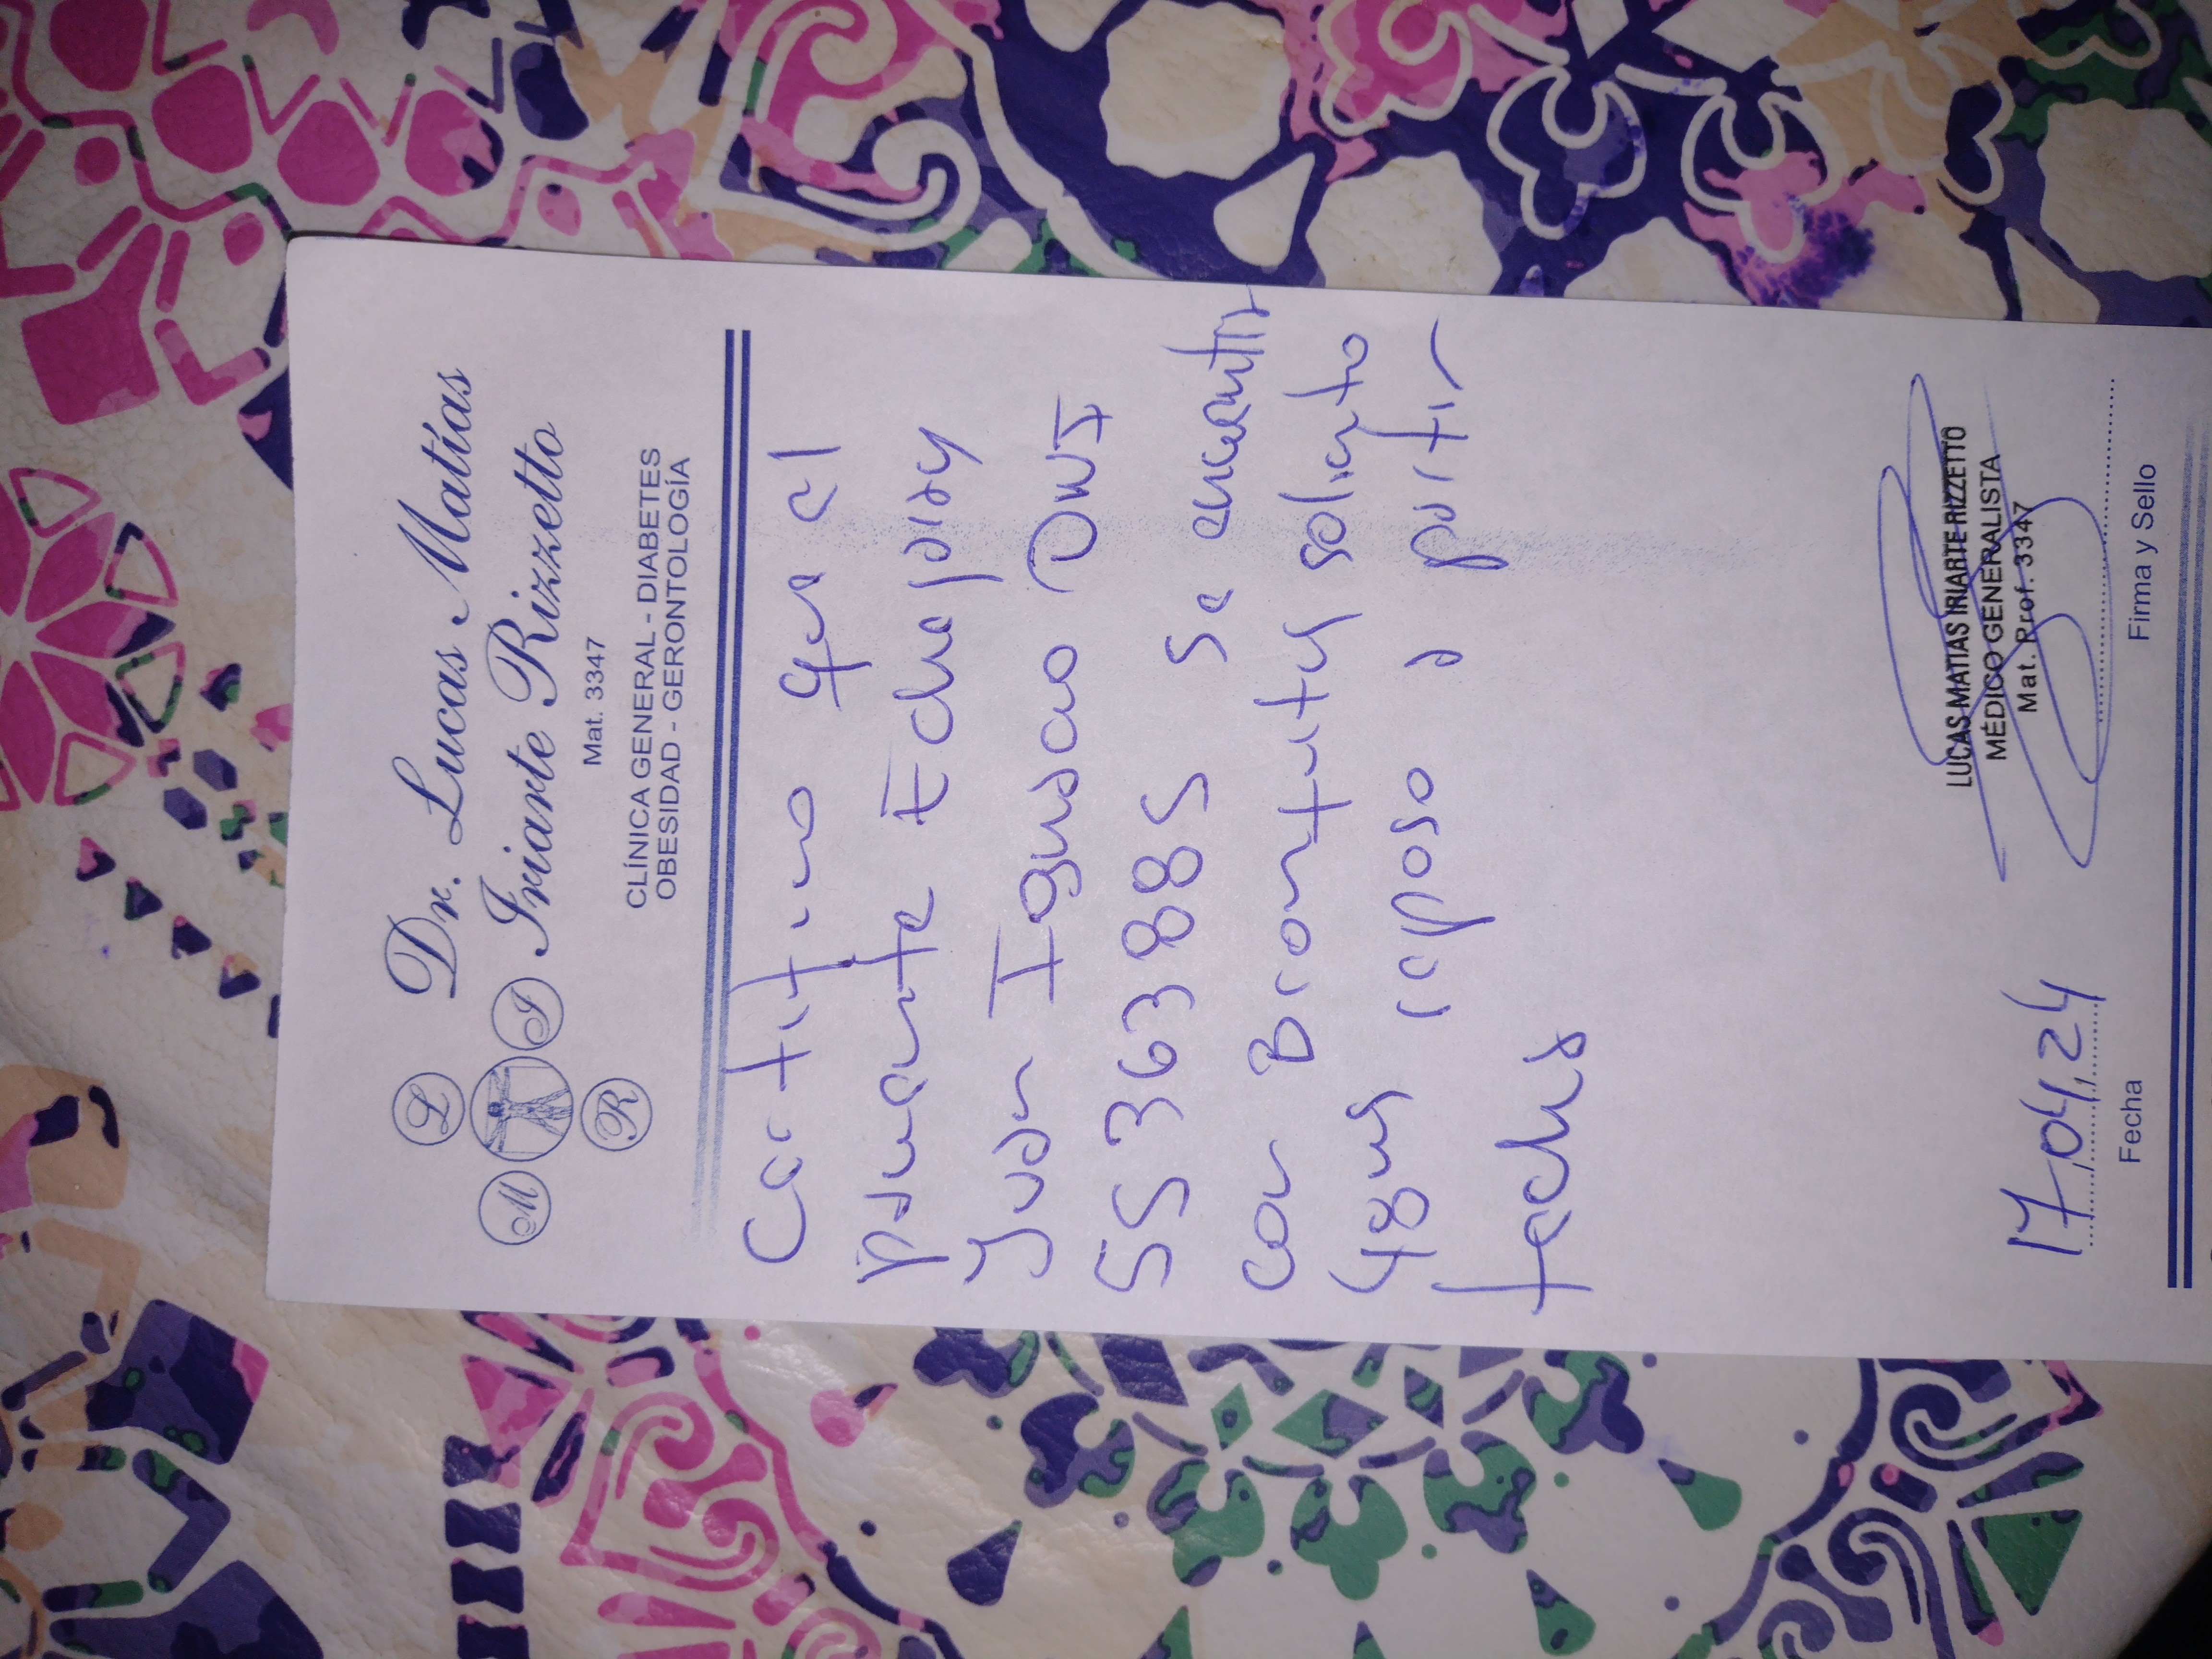 L
M
I
R
Dr. Lucas Matías
Iriarte Rizzetto
Mat. 3347
CLÍNICA GENERAL - DIABETES
OBESIDAD - GERONTOLOGÍA
Certifico que el
paciente Echepiay
Juan Ignacio DNI
55363885 se encuentra
con solicito
48hs reposo a partir
fecha
17,04,24
Fecha
LUCAS MATIAS IRIARTE RIZZETTO
MÉDICO GENERALISTA
Mat. Prof. 3347
Firma y Sello